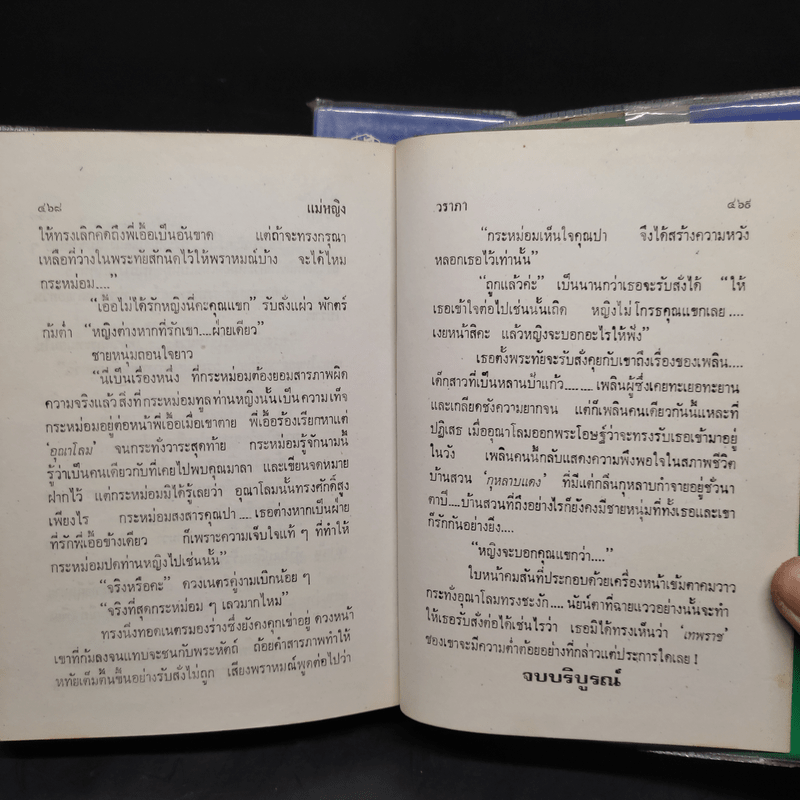 ๔๖๘
แม่หญิง
ให้ทรงเลิกคิดถึงพี่เอื้อเป็นอันขาด แต่ถ้าจะทรงกรุณา
เหลือที่ว่างในพระทัยสักนิดไว้ให้พราหมณ์บ้าง จะได้ไหม
กระหม่อม....”
“เอื้อไม่ได้รักหญิงนี่คะคุณแขก” รับสั่งแผ่ว พักตร์
ก้มต่ำ “หญิงต่างหากที่รักเขา....ฝ่ายเดียว”
ชายหนุ่มถอนใจยาว
“นี่เป็นเรื่องหนึ่ง ที่กระหม่อมต้องยอมสารภาพผิด
ความจริงแล้วสิ่งที่กระหม่อมทูลท่านหญิงนั้นเป็นความเท็จ
กระหม่อมอยู่ต่อหน้าพี่เอื้อเมื่อเขาตาย พี่เอื้อร้องเรียกหาแต่
‘อุณาโลม’ จนกระทั่งวาระสุดท้าย กระหม่อมรู้จักนามนี้
รู้ว่าเป็นคนเดียวกับที่เคยไปพบคุณมาลา และเขียนจดหมาย
ฝากไว้ แต่กระหม่อมมิได้รู้เลยว่า อุณาโลมนั้นทรงศักดิ์สูง
เพียงไร กระหม่อมสงสารคุณปา....เธอต่างหากเป็นฝ่าย
ที่รักพี่เอื้อข้างเดียว ก็เพราะความเจ็บใจแท้ ๆ ที่ทำให้
กระหม่อมปดท่านหญิงไปเช่นนั้น”
“จริงหรือคะ” ดวงเนตรคู่งามเบิกน้อย ๆ
“จริงที่สุดกระหม่อม ๆ เลวมากไหม”
ทรงนิ่งทอดเนตรมองร่างซึ่งยังคงคุกเข่าอยู่ ดวงหน้า
เขาที่ก้มลงจนแทบจะชนกับพระหัตถ์ ถ้อยคำสารภาพทำให้
หทัยเต็มตื้นขึ้นอย่างรับสั่งไม่ถูก เสียงพราหมณ์พูดต่อไปว่า
วราภา
๔๖๙
“กระหม่อมเห็นใจคุณปา จึงได้สร้างความหวัง
หลอกเธอไว้เท่านั้น”
“ถูกแล้วค่ะ” เป็นนานกว่าเธอจะรับสั่งได้ “ให้
เธอเข้าใจต่อไปเช่นนั้นเถิด หญิงไม่โกรธคุณแขกเลย....
เงยหน้าสิคะ แล้วหญิงจะบอกอะไรให้ฟัง”
เธอตั้งพระทัยจะรับสั่งคุยกับเขาถึงเรื่องของเพลิน....
เด็กสาวที่เป็นหลานป้าแก้ว........เพลินผู้ซึ่งเคยทะเยอทะยาน
และเกลียดชังความยากจน แต่ก็เพลินคนเดียวกันนี้แหละที่
ปฏิเสธ เมื่ออุณาโลมออกพระโอษฐ์ว่าจะทรงรับเธอเข้ามาอยู่
ในวัง เพลินคนนี้กลับแสดงความพึงพอใจในสภาพชีวิต
บ้านสวน ‘กุหลาบแดง’ ที่มีแต่กลิ่นกุหลาบกำจายอยู่ชั่วนา
ตาปี....บ้านสวนที่ถึงอย่างไรก็ยังคงมีชายหนุ่มที่ทั้งเธอและเขา
ก็รักกันอย่างยิ่ง....
“หญิงจะบอกคุณแขกว่า....”
ใบหน้าคมสันที่ประกอบด้วยเครื่องหน้าเข้มตาคมวาว
กระทั่งอุณาโลมทรงชะงัก....นัยน์ตาที่ฉายแววอย่างนั้นจะทำ
ให้เธอรับสั่งต่อได้เช่นไรว่า เธอมิได้ทรงเห็นว่า ‘เทพราช’
ของเขาจะมีความต่ำต้อยอย่างที่กล่าวแต่ประการใดเลย !
จบบริบูรณ์